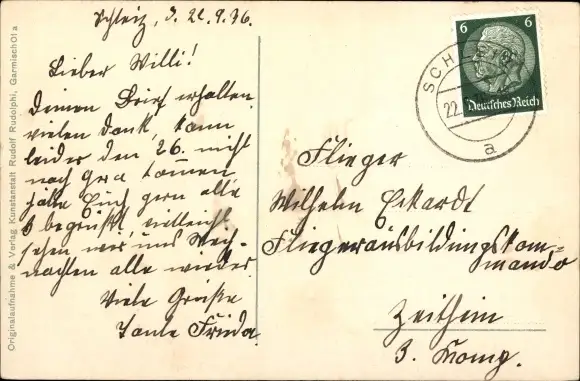 Schleiz, d. 22.9.36.
Lieber Willi!
Deinen Brief erhalten
vielen Dank, kann
leider den 26. nicht
nach Gera kommen
hätte Euch gern alle
begrüßt, vielleicht
sehen wir uns Weih-
nachten alle wieder
Viele Grüße
Tante Frieda.
Flieger
Wilhelm Eckardt
Fliegerausbildungskom=
mando
Zeithein
3. Komp.
6 6
Deutsches Reich
SCH
22.
a
Originalaufnahme & Verlag Kunstanstalt Rudolf Rudolphi, Garmisch 01 a